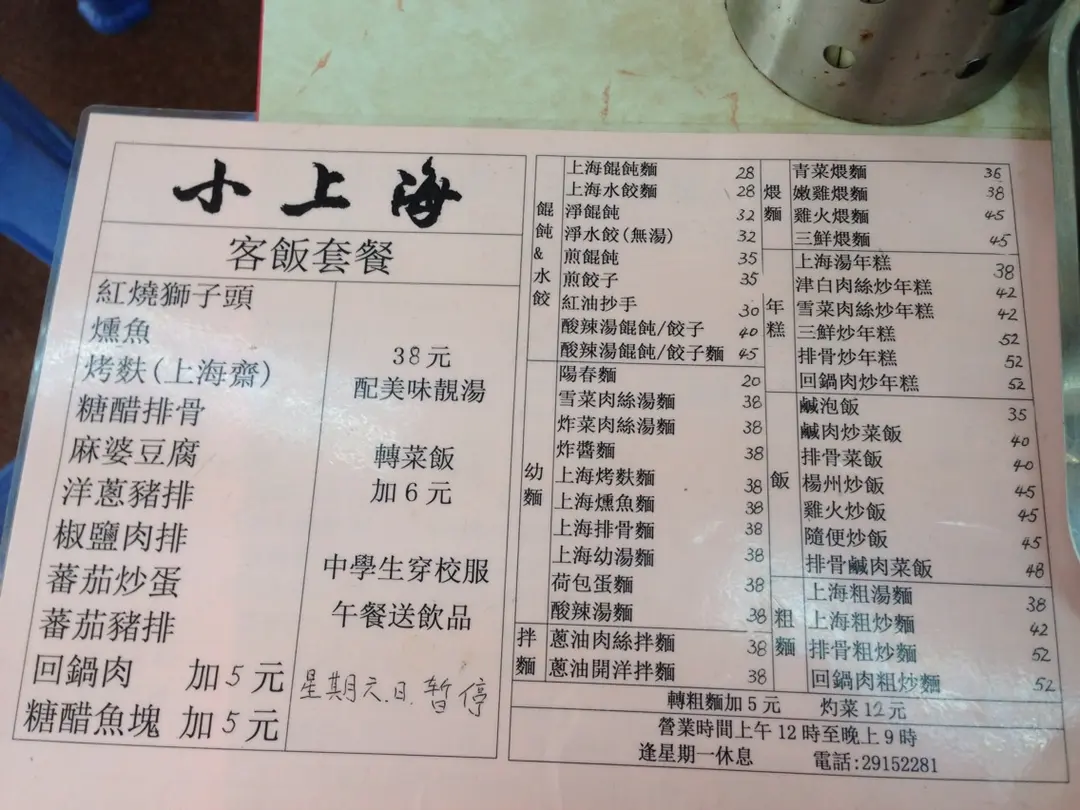 小上海
客飯套餐
紅燒獅子頭
燻魚
烤麩(上海齋)
糖醋排骨
麻婆豆腐
洋蔥豬排
椒鹽肉排
蕃茄炒蛋
蕃茄豬排
回鍋肉 加5元
糖醋魚塊 加5元
38元
配美味靚湯
轉菜飯
加6元
中學生穿校服
午餐送飲品
星期六.日.暫停
餛飩&水餃
上海餛飩麵 28
上海水餃麵 28
淨餛飩 32
淨水餃(無湯) 32
煎餛飩 35
煎餃子 35
紅油抄手 30
酸辣湯餛飩/餃子 40
酸辣湯餛飩/餃子麵 45
幼麵
陽春麵 20
雪菜肉絲湯麵 38
炸菜肉絲湯麵 38
炸醬麵 38
上海烤麩麵 38
上海燻魚麵 38
上海排骨麵 38
上海幼湯麵 38
荷包蛋麵 38
酸辣湯麵 38
拌麵
蔥油肉絲拌麵 38
蔥油開洋拌麵 38
煨麵
青菜煨麵 36
嫩雞煨麵 38
雞火煨麵 45
三鮮煨麵 45
年糕
上海湯年糕 38
津白肉絲炒年糕 42
雪菜肉絲炒年糕 42
三鮮炒年糕 52
排骨炒年糕 52
回鍋肉炒年糕 52
飯
鹹泡飯 35
鹹肉炒菜飯 40
排骨菜飯 40
楊州炒飯 45
雞火炒飯 45
隨便炒飯 45
排骨鹹肉菜飯 48
粗麵
上海粗湯麵 38
上海粗炒麵 42
排骨粗炒麵 52
回鍋肉粗炒麵 52
轉粗麵加5元 灼菜12元
營業時間上午12時至晚上9時
逢星期一休息 電話:29152281